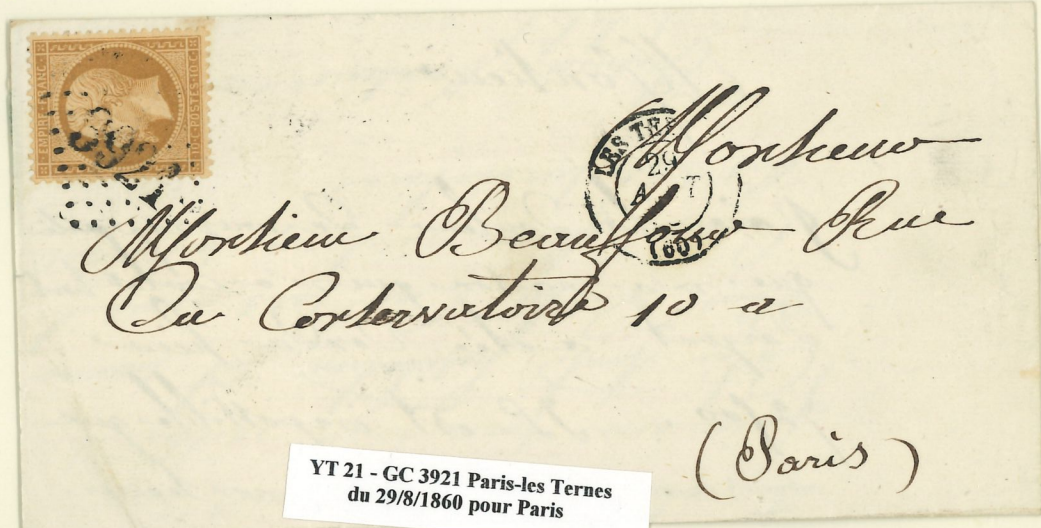 EMPIRE FRANC
POSTES
3921
LES TE
29
A T
(60)
Monsieur
Monsieur Rue
Du Conservatoire 10 a
(Paris)
YT 21 - GC 3921 Paris-les Ternes
du 29/8/1860 pour Paris